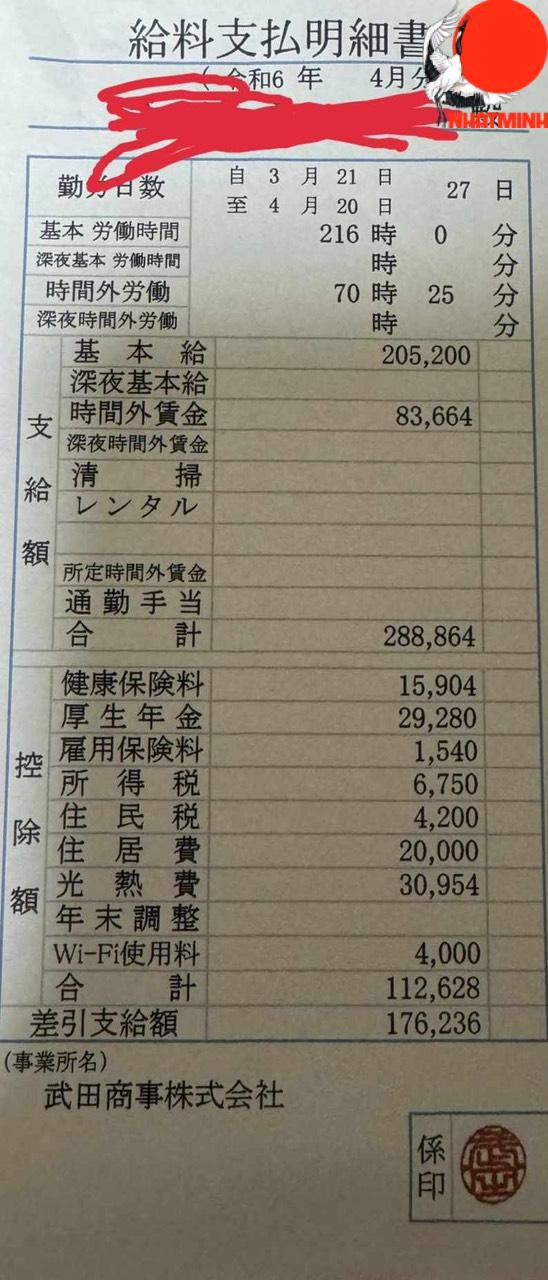 給料支払明細書
( 令和6 年 4月分
NHATMINH
勤労日数 自 3 月 21 日 至 4 月 20 日 27 日
基本 労働時間 216 時 0 分
深夜基本 労働時間 時 分
時間外労働 70 時 25 分
深夜時間外労働 時 分
支給額
基本給 205,200
深夜基本給
時間外賃金 83,664
深夜時間外賃金
清掃
レンタル
所定時間外賃金
通勤手当
合計 288,864
控除額
健康保険料 15,904
厚生年金 29,280
雇用保険料 1,540
所得税 6,750
住民税 4,200
住居費 20,000
光熱費 30,954
年末調整
Wi-Fi使用料 4,000
合計 112,628
差引支給額 176,236
(事業所名)
武田商事株式会社
係印